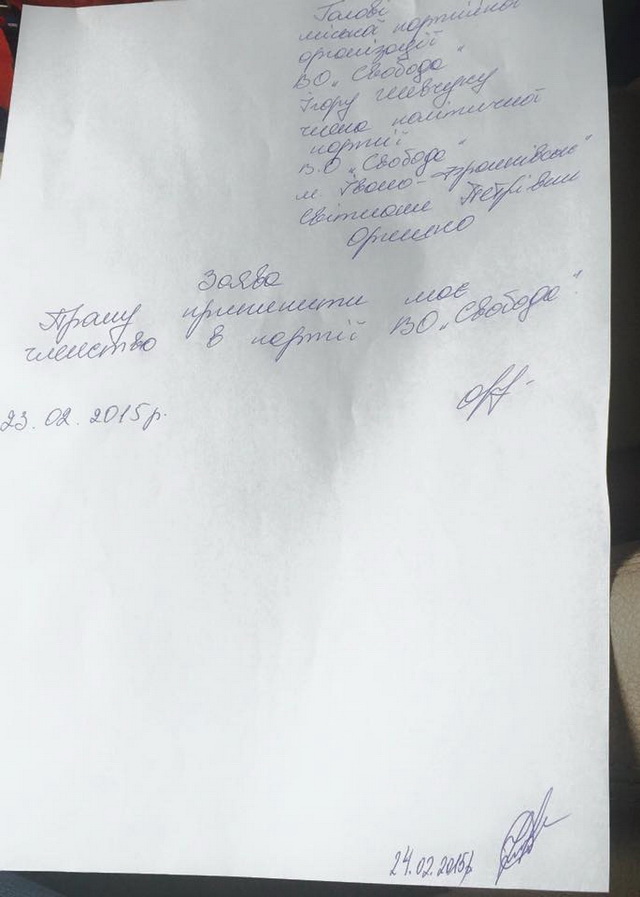 Голові
міської партійної
організації
ВО „Свобода"
Ігору Шевчуку
члена політичної
партії
В.О „Свобода"
м Івано-Франківськ"
Світлани Петрівни
Заява
Прошу припинити моє
членство в партії ВО „Свобода".
23.02.2015р.
24.02.2015р